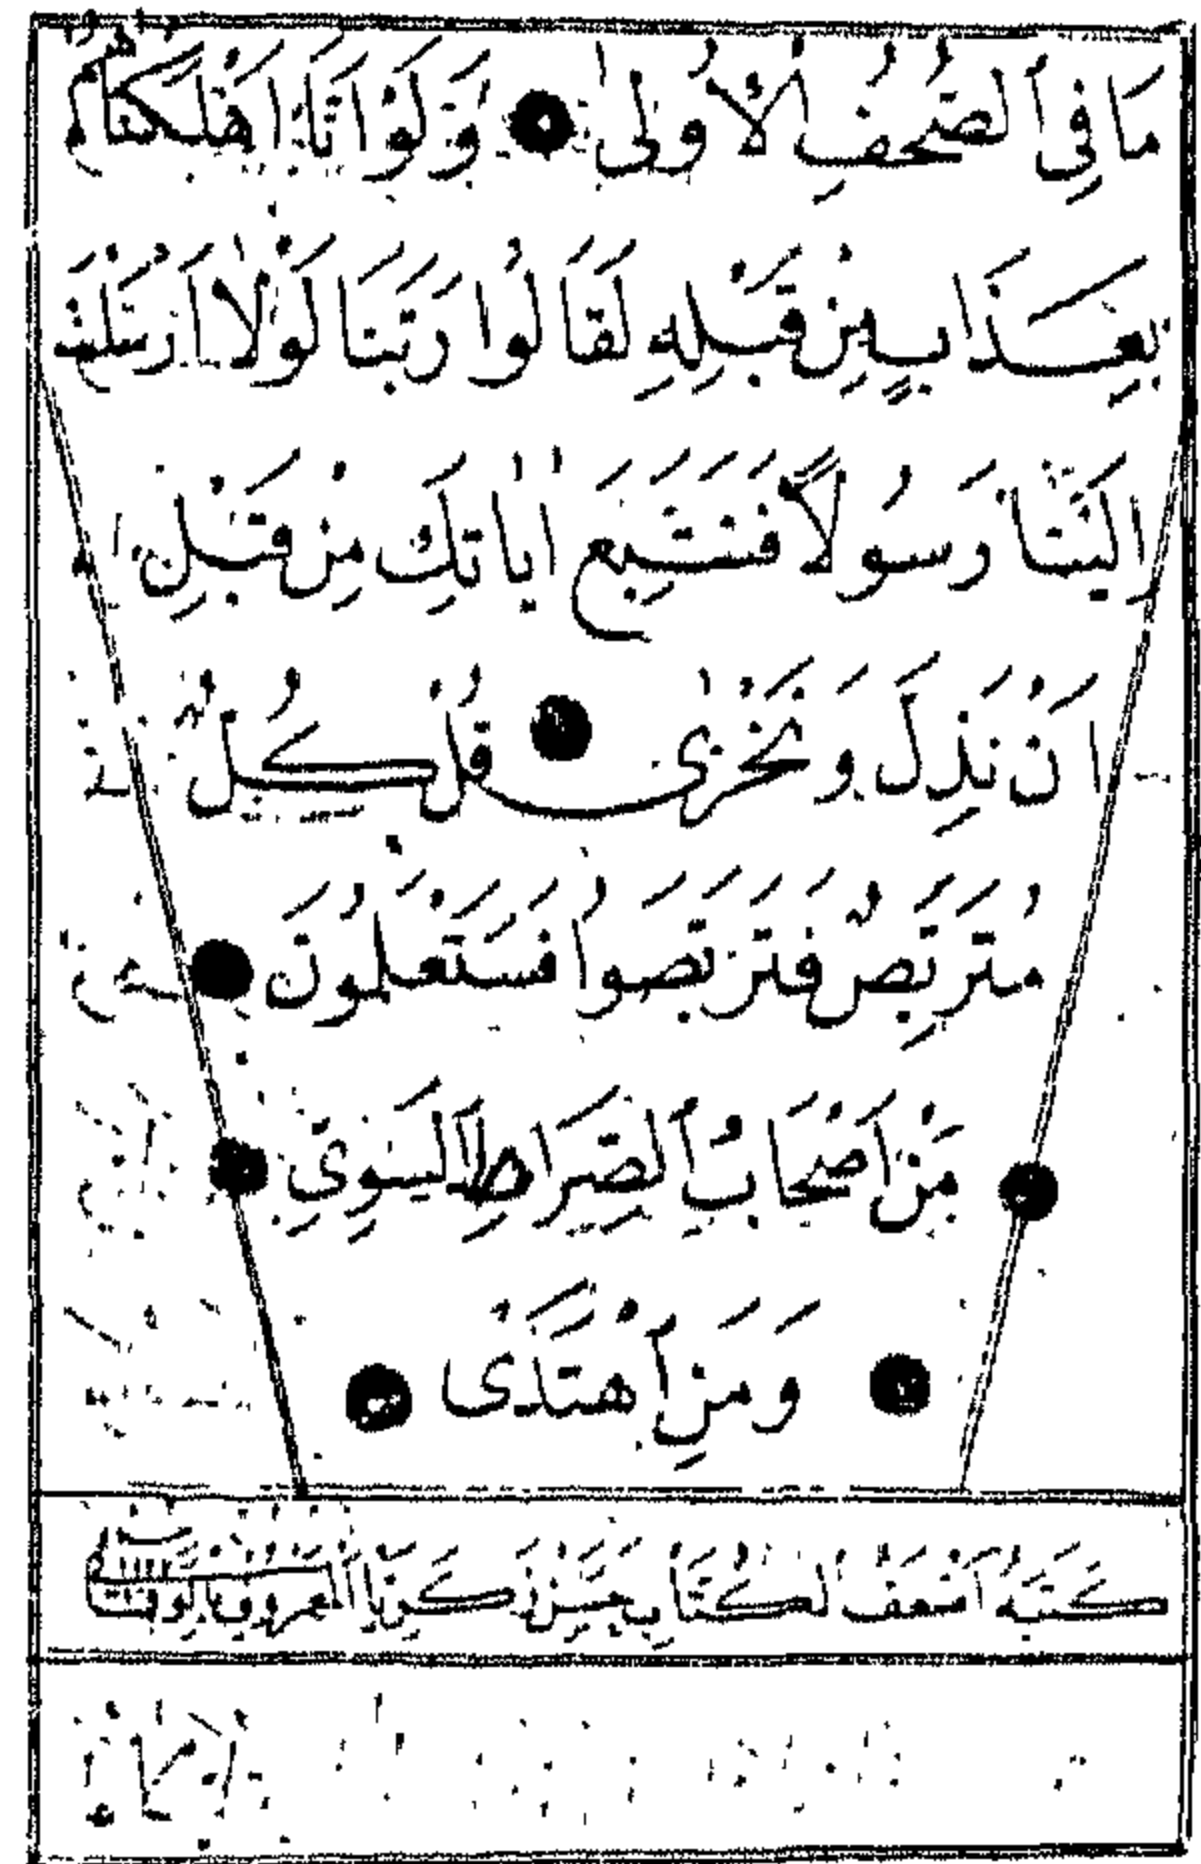 مَا فِي ٱلصُّحُفِ ٱلْأُولٰى وَلَوْ اَنَّا اَهْلَكْنَاهُمْ
بِعَذَابٍ مِنْ قَبْلِهِ لَقَالُوا رَبَّنَا لَوْلَا اَرْسَلْتَ
اِلَيْنَا رَسُولًا فَنَتَّبِعَ اٰيَاتِكَ مِنْ قَبْلِ
اَنْ نَذِلَّ وَنَخْزٰى قُلْ كُلٌّ
مُتَرَبِّصٌ فَتَرَبَّصُوا فَسَتَعْلَمُونَ
مَنْ اَصْحَابُ ٱلصِّرَاطِ ٱلسَّوِيِّ
وَمَنِ ٱهْتَدٰى
كَتَبَهُ اَضْعَفُ ٱلْكُتَّابِ حَسَنْ زَكَرِيَّا ٱلْمَعْرُوفُ